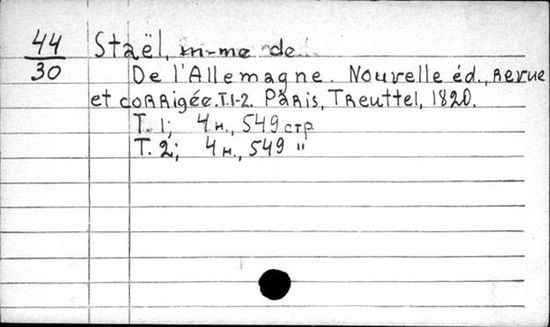 44 Staël, m-me de
30 De l'Allemagne. Nouvelle éd., revue
et corrigée. T.1-2. Paris, Treuttel, 1820.
T. 1; 4 н., 549 стр
T. 2; 4 н., 549 "